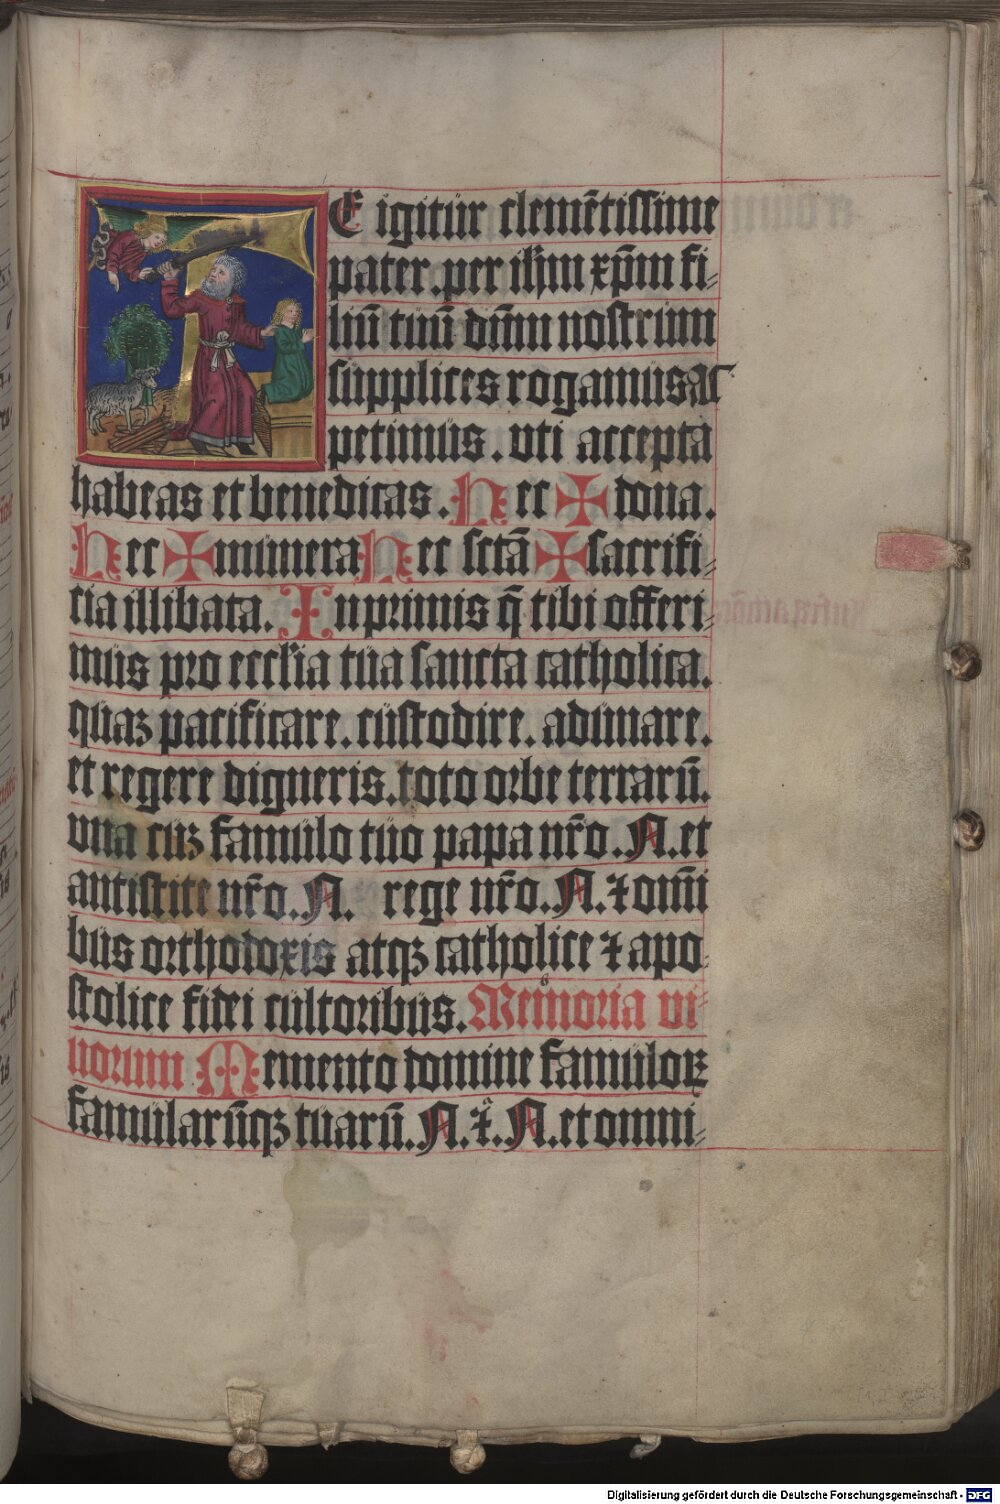 TE igitur clemētissime
pater. per ih̄m xp̄m fi-
liū tuū dn̄m nostrum
supplices rogamus ac
petimus. vti accepta
habeas et benedicas. Hec ✠ dona.
Hec ✠ munera Hec sctā ✠ sacrifi-
cia illibata. Inprimis q̄ tibi offeri-
mus pro eccl'ia tua sancta catholica.
quaꝫ pacificare. custodire. adunare.
et regere digneris. toto orbe terrarū.
vna cuꝫ famulo tuo papa nr̄o. N. et
antistite nr̄o. N. rege nr̄o. N. ⁊ om̄i
bus orthodoxis atqꝫ catholice ⁊ apo-
stolice fidei cultoribus. Memoria vi-
uorum Memento domine famuloꝝ
famularūqꝫ tuarū. N. ⁊. N. et omni-
Digitalisierung gefördert durch die Deutsche Forschungsgemeinschaft - DFG